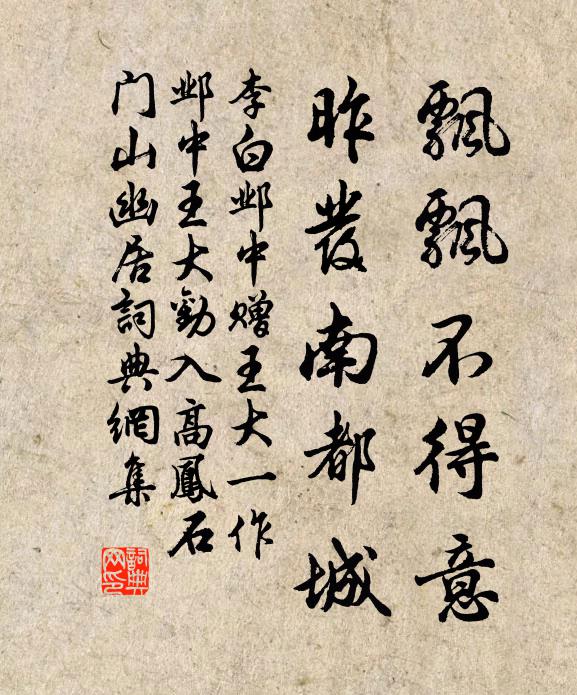 飄飄不得意
昨發南都城
李白邺中贈王大一作
邺中王大勸入高鳳石
门山幽居詞典網集
詞典
网印